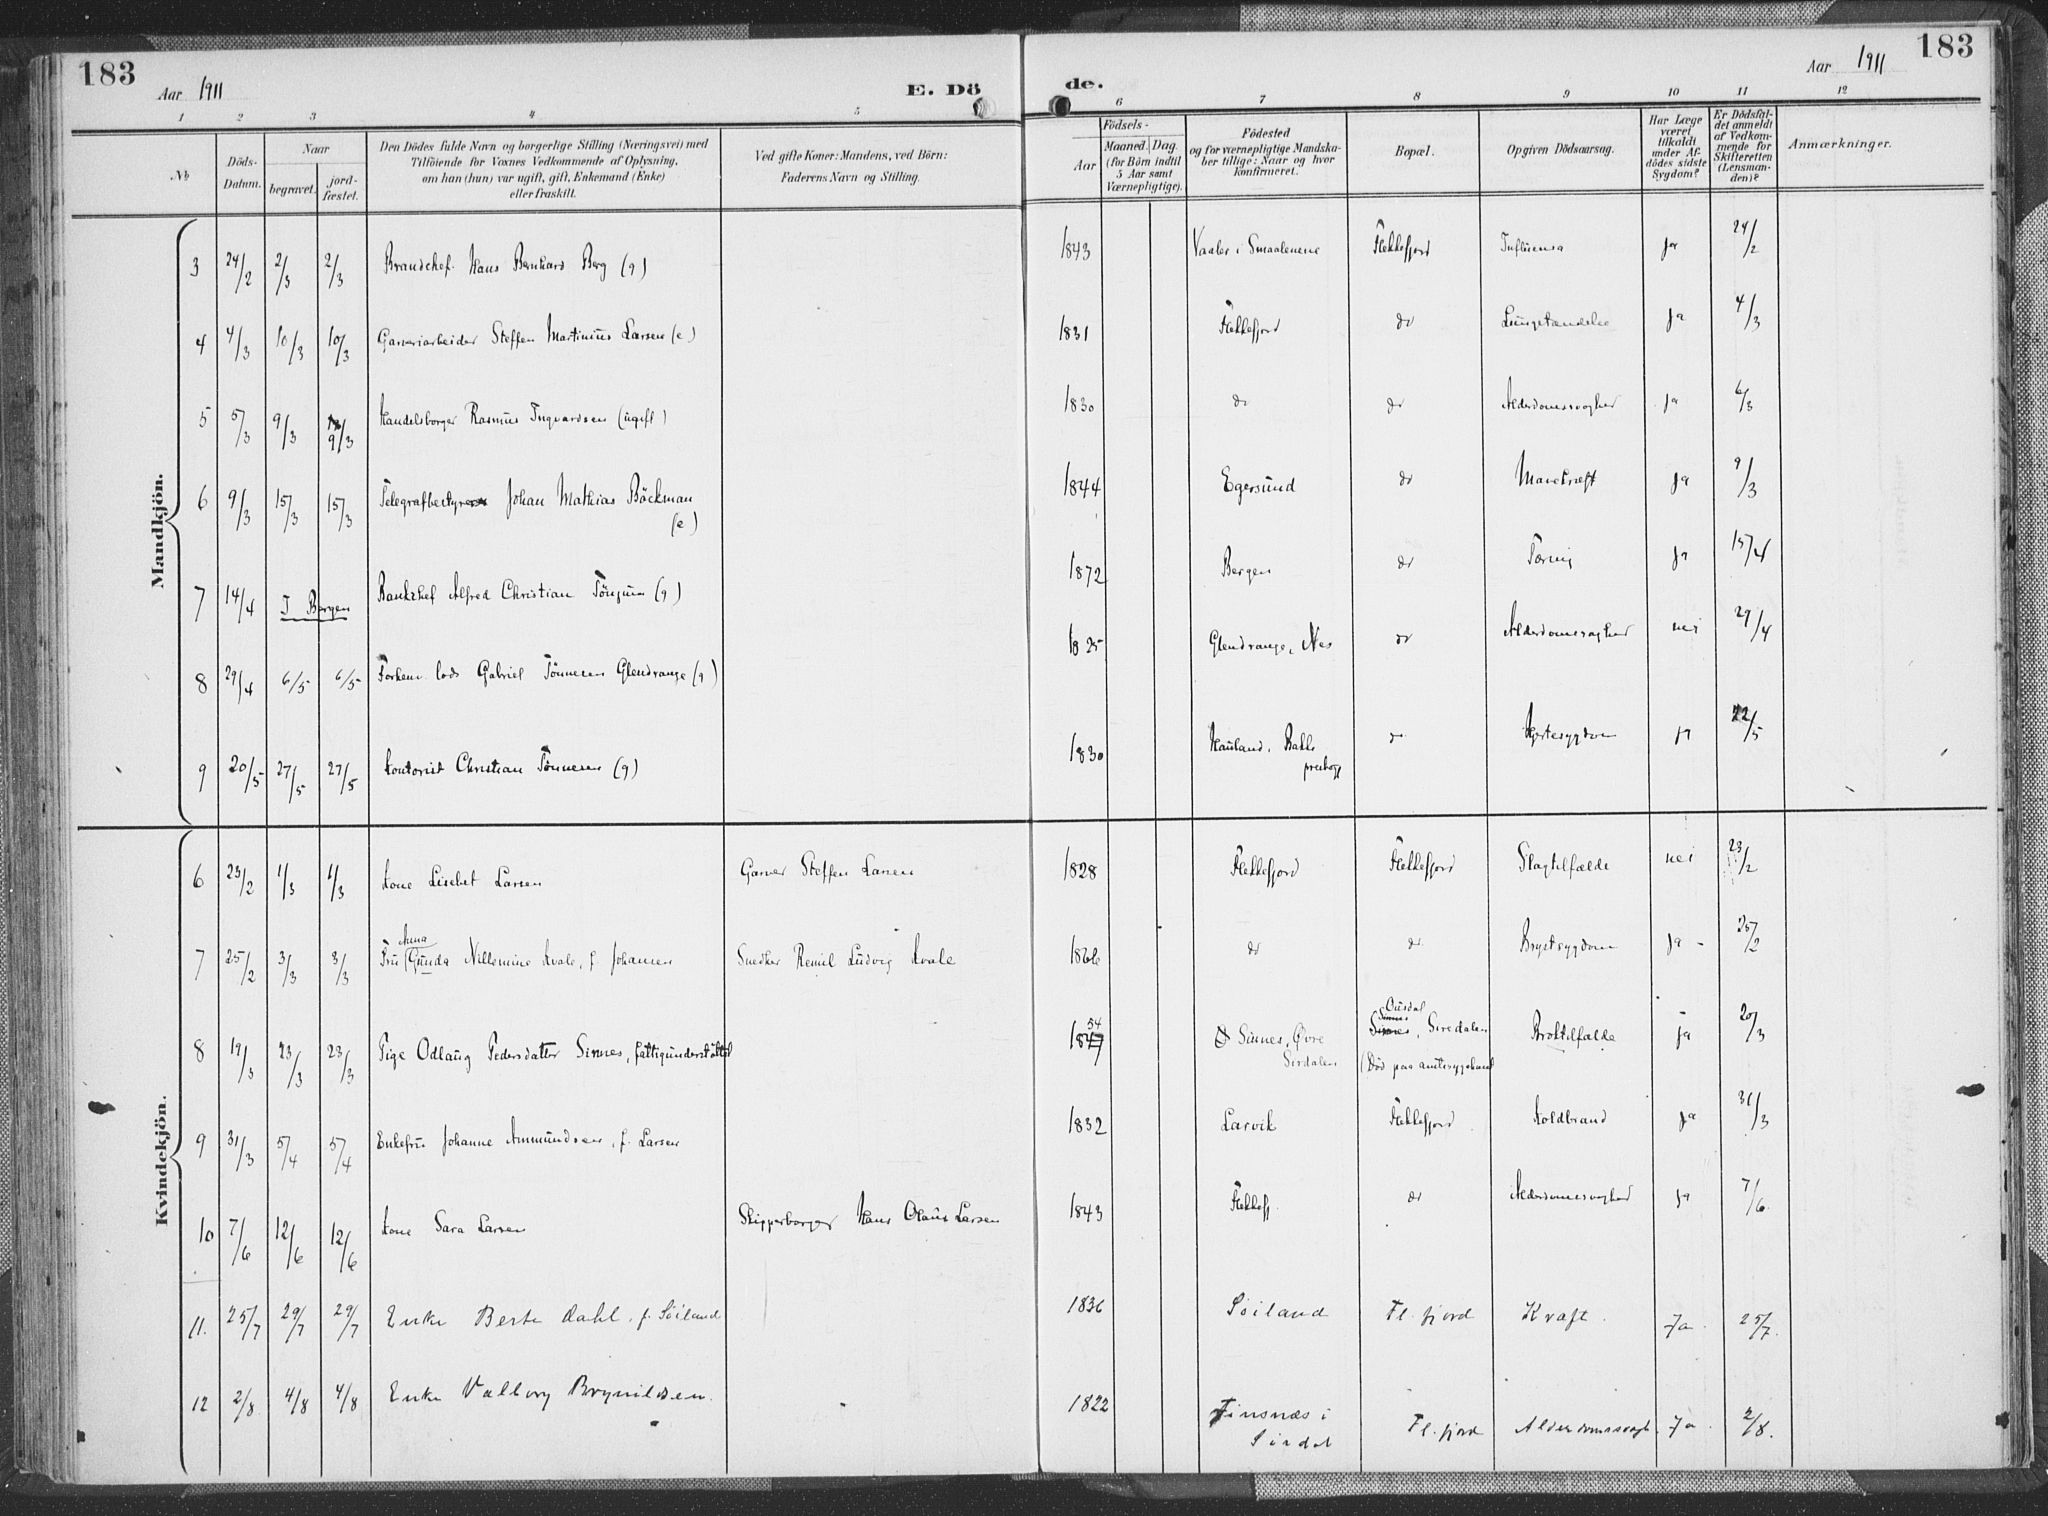 183
Aar 1911
E. Dö
de.
Aar 1911
183
1 2 3 4 5 6 7 8 9 10 11 12
No
Döds-Datum.
Naar
begravet.
jord-fæstet.
Den Dödes fulde Navn og borgerlige Stilling (Næringsvei) med
Tilföiende for Voxnes Vedkommende af Oplysning,
om han (hun) var ugift, gift, Enkemand (Enke)
eller fraskilt.
Ved gifte Koner: Mandens, ved Börn:
Faderens Navn og Stilling.
Födsels-
Aar
Maaned. Dag.
(for Börn indtil
5 Aar samt
Værnepligtige).
Födested
og for værnepligtige Mandska-
ber tillige: Naar og hvor
konfirmeret.
Bopæl.
Opgiven Dödsaarsag.
Har Læge
været
tilkaldt
under Af-
dödes sidste
Sygdom?
Er Dödsfal-
det anmeldt
af Vedkom-
mende for
Skifteretten
(Lensman-
den)?
Anmærkninger.
Mandkjön.
3 24/2 2/3 2/3 Brandchef. Hans Bernhard Berg (g) 1843 Vaaler i Smaalenene Flekkefjord Influensa ja 24/2
4 4/3 10/3 10/3 Garveriarbeider Steffen Martinius Larsen (e) 1831 Flekkefjord do ja 4/3
5 5/3 9/3 9/3 Handelsborger Rasmus Ingvardsen (ugift) 1830 do do Alderdomssvaghed ja 6/3
6 9/3 15/3 15/3 Telegrafbestyrer Johan Mathias Böckman
(e) 1844 Egersund do Mavekræft ja 9/3
7 14/4 I Bergen Bankchef Alfred Christian (g) 1872 Bergen do Tæring ja 15/4
8 29/4 6/5 6/5 lods Gabriel Tönnesen Glendrange (g) 1825 Glendrange, Nes do Alderdomssvaghed nei 29/4
9 20/5 27/5 27/5 Kontorist Christian Tönnesen (g) 1830 Hauland, Bakke
do Hjertesygdom ja 22/5
Kvindekjön.
6 23/2 1/3 1/3 Kone Lisebet Larsen Garver Steffen Larsen 1828 Flekkefjord Flekkefjord Slagtilfælde nei 23/2
Anna
7 25/2 3/3 3/3 Fru Gunda Villemine Kvale, f. Johansen Snedker Ludvig Kvale 1866 do do Brystsygdom ja - 25/2
54 Ousdal
Sinnes
8 19/3 23/3 23/3 Pige Odlaug Pedersdatter Sinnes, fattigunderstöttet 1847 Sinnes, Øvre
Sirdalen
Sinnes, Siredalen
(Död paa amtssygehuset Broktilfælde ja 20/3
9 31/3 5/4 5/4 Enkefru Johanne Ammundsen, f. Larsen 1832 Larvik Flekkefjord Koldbrand ja 31/3
10 7/6 12/6 12/6 Kone Sara Larsen Skipperborger Hans Olaus Larsen 1843 Flekkefj. do Alderdomssvaghed ja 7/6
11. 25/7 29/7 29/7 Enke Berte Dahl, f. Söiland 1836 Söiland Fl.fjord Kræft. Ja. 25/7.
12 2/8 4/8 4/8 Enke Valborg Brynildsen. 1822 Finsnæs i
Sirdal Fl.fjord Alderdomssvagh. Ja. 2/8.